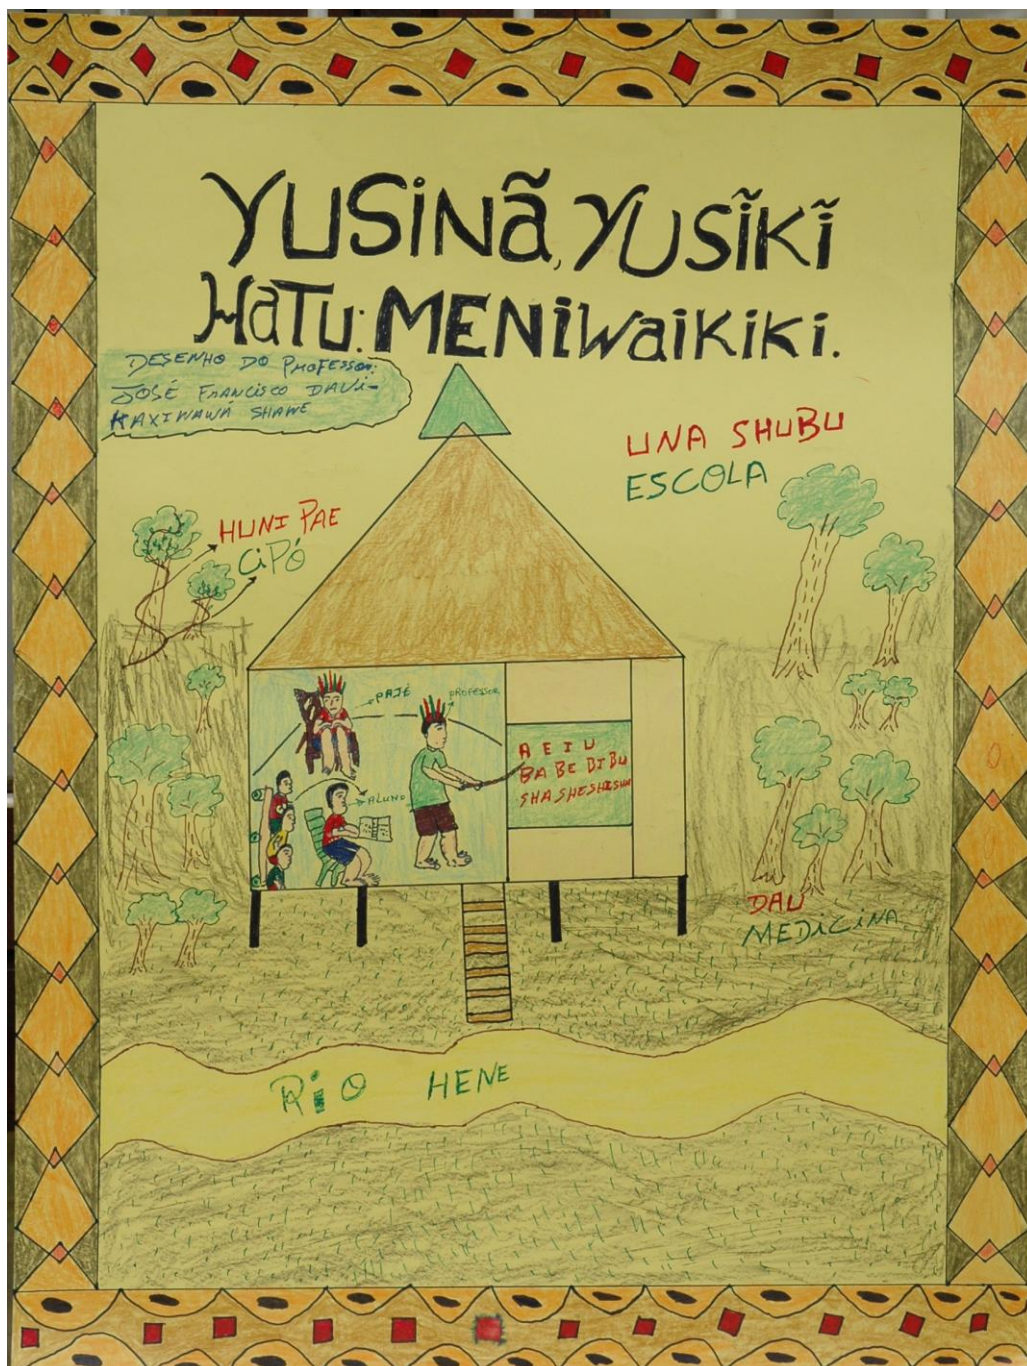 YUSiNã, YUSĩKĩ
HaTU: MENiWaiKiKi.
DESENHO DO PROFESSOR:
JOSÉ FRANCISCO DAVI-
KAXIWAWÁ SHAWE
UNA SHUBU
ESCOLA
HUNI PAE
CiPÓ
PAJÉ
PROFESSOR
A E I U
BA BE BI BU
SHA SHE SHI SHU
ALUNO
DAU
MEDICINA
RiO HENE